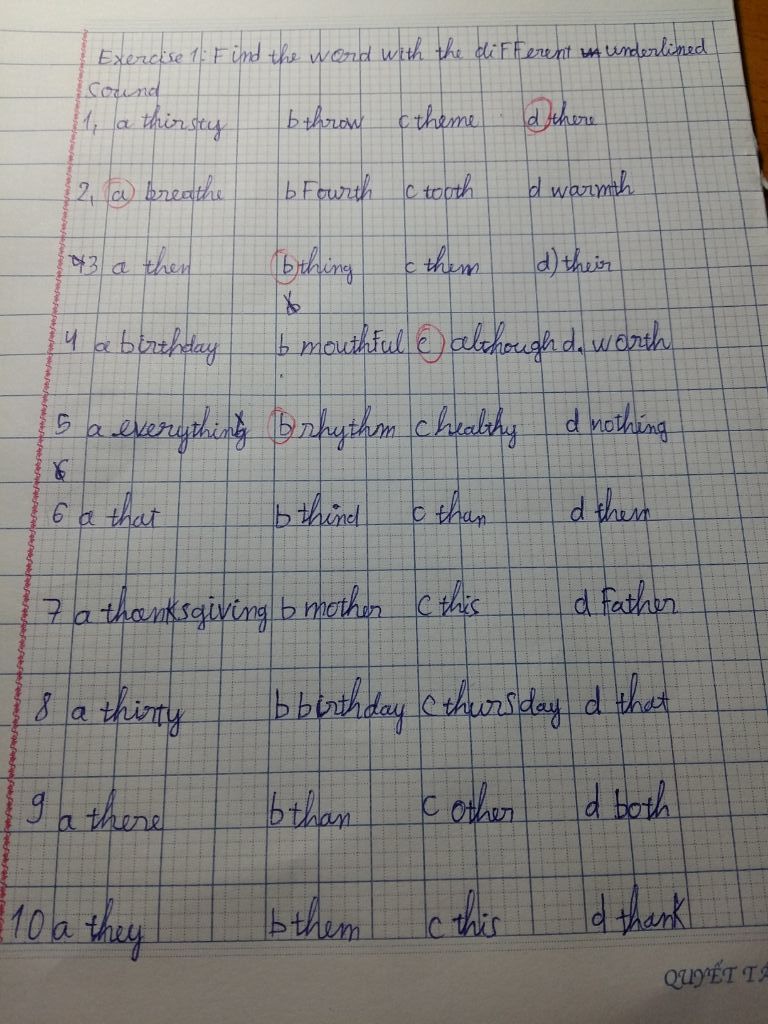 Exercise 1: Find the word with the different underlined
sound
1, a thirsty b throw c theme d there
2, a breathe b Fourth c tooth d warmth
3 a then b thing c them d) their
4 a birthday b mouthful c although d. worth
5 a everything b rhythm c healthy d nothing
6 a that b thind c than d them
7 a thanksgiving b mother c this d Father
8 a thirty b birthday c thursday d that
9 a there b than c other d both
10 a they b them c this d thank